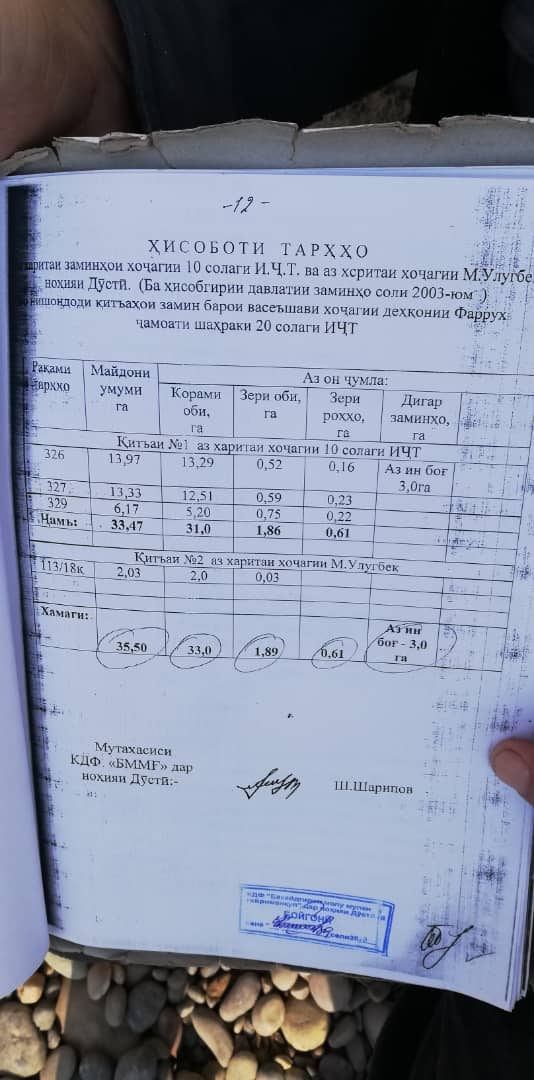 -12-
ҲИСОБОТИ ТАРҲҲО
харитаи заминҳои хоҷагии 10 солаги И.Ҷ.Т. ва аз хсритаи хоҷагии М.Улугбек
ноҳияи Дӯстӣ. (Ба хисобгирии давлатии заминҳо соли 2003-юм )
нишондоди қитъаҳои замин барои васеъшави хоҷагии дехқонии Фаррух
ҷамоати шаҳраки 20 солаги ИҶТ
Рақами тарҳҳо | Майдони умуми га | Аз он ҷумла:
Корами оби, га | Зери оби, га | Зери роҳҳо, га | Дигар заминҳо, га
Қитъаи №1 аз харитаи хоҷагии 10 солаги ИҶТ
326 | 13,97 | 13,29 | 0,52 | 0,16 | Аз ин боғ 3,0га
327 | 13,33 | 12,51 | 0,59 | 0,23
329 | 6,17 | 5,20 | 0,75 | 0,22
Ҷамъ: | 33,47 | 31,0 | 1,86 | 0,61
Қитъаи №2 аз харитаи хоҷагии М.Улугбек
113/18қ | 2,03 | 2,0 | 0,03
Хамаги: | 35,50 | 33,0 | 1,89 | 0,61 | Аз ин боғ - 3,0 га
Мутахасиси
КДФ. «БММҒ» дар
ноҳияи Дӯстӣ:-
Ш.Шарипов
БОЙГОНӢ